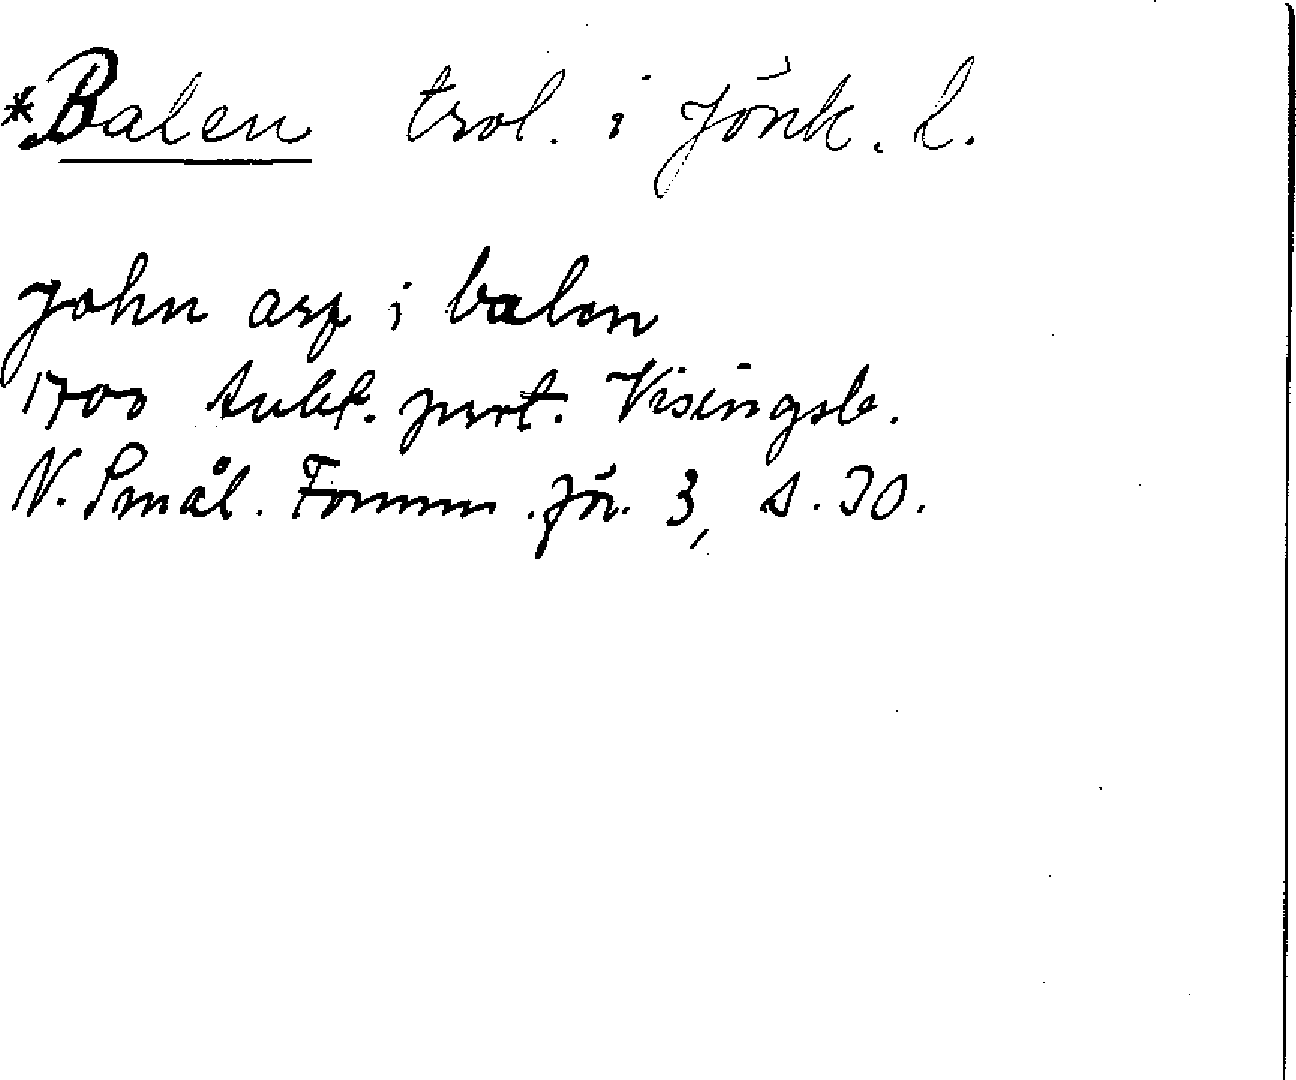 *Balen trol. i Jönk. l.
John asp i balen
1700 Aukt. prot. Visingsb.
N. Smål. Fornm.för. 3, s. 30.